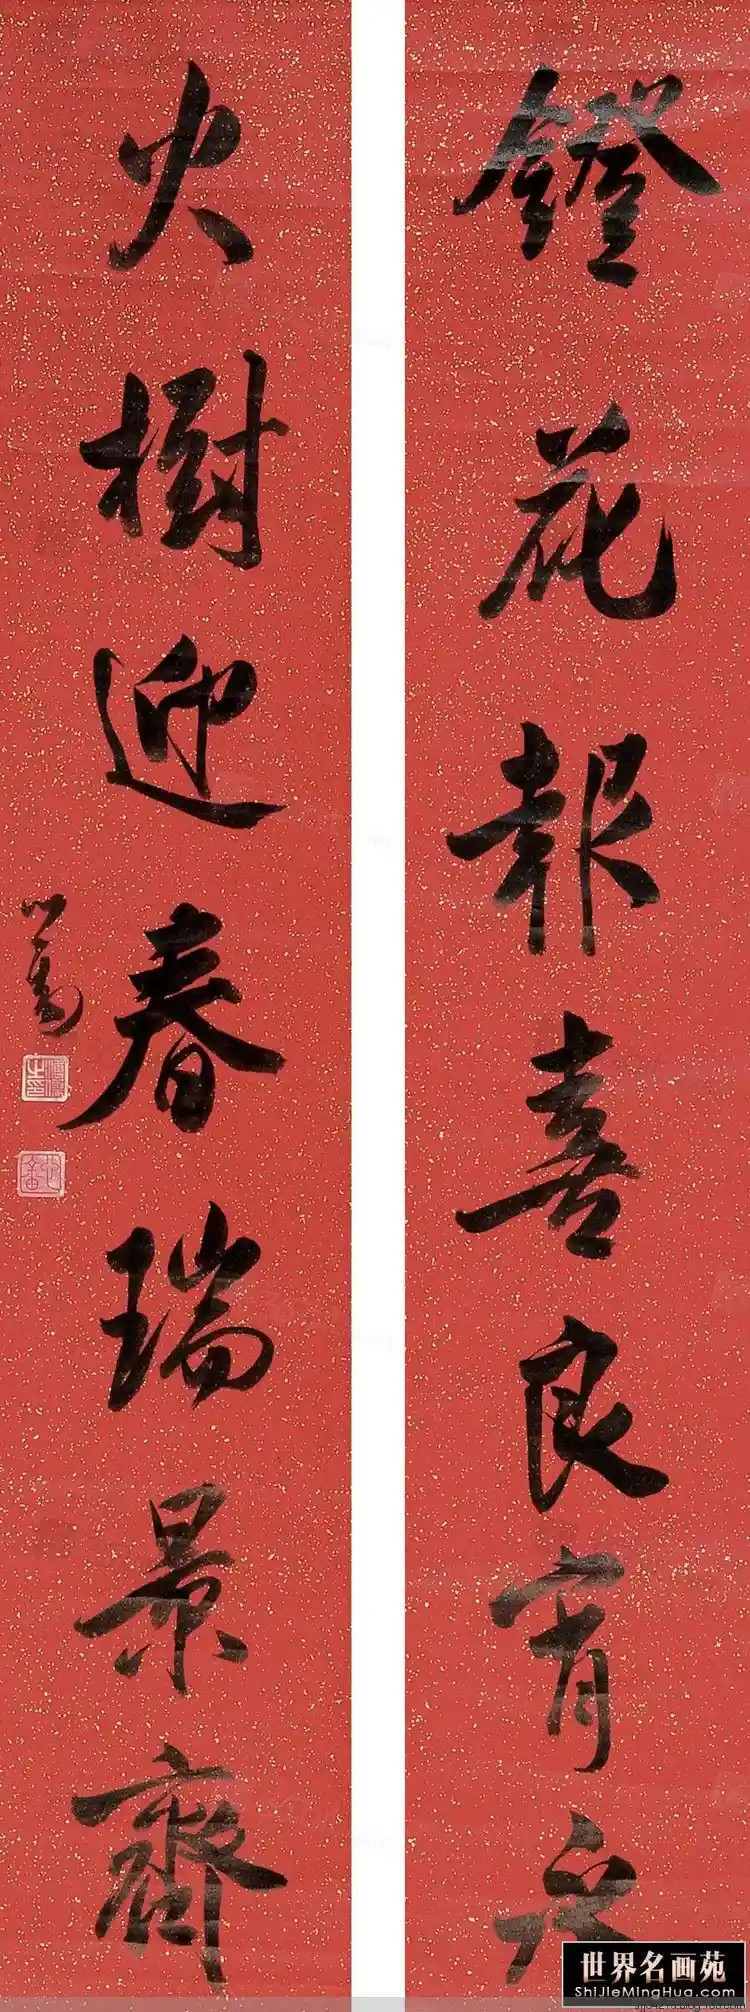 鐙花報喜良宵永
火樹迎春瑞景齊
心畬
世界名画苑
ShiJieMingHua.com